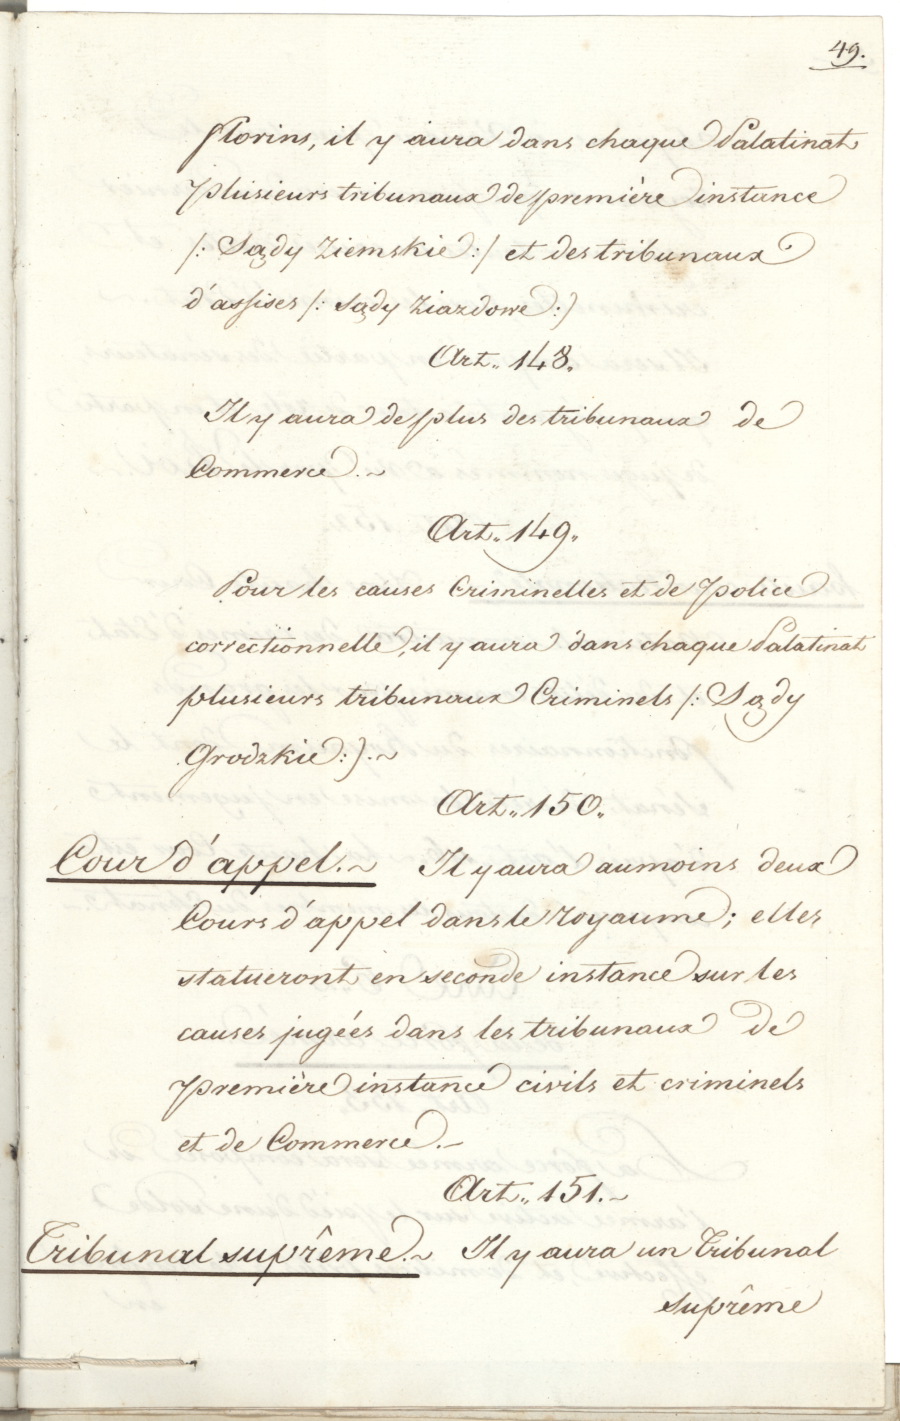 49.
florins, il y aura dans chaque Palatinat
plusieurs tribunaux de première instance
/: Sądy Ziemskie :/ et des tribunaux
d'assises /: Sądy Ziazdowe :/
Art. 148.
Il y aura de plus des tribunaux de
Commerce.~
Art. 149.
Pour les causes Criminelles et de Police
correctionnelle, il y aura dans chaque Palatinat
plusieurs tribunaux Criminels /: Sądy
Grodzkie :/.~
Art. 150.
Cour d'appel.~ Il y aura au moins deux
Cours d'appel dans le royaume; elles
statueront en seconde instance sur les
causes jugées dans les tribunaux de
première instance civils et criminels
et de Commerce.~
Art. 151.~
Tribunal suprême.~ Il y aura un Tribunal
suprême